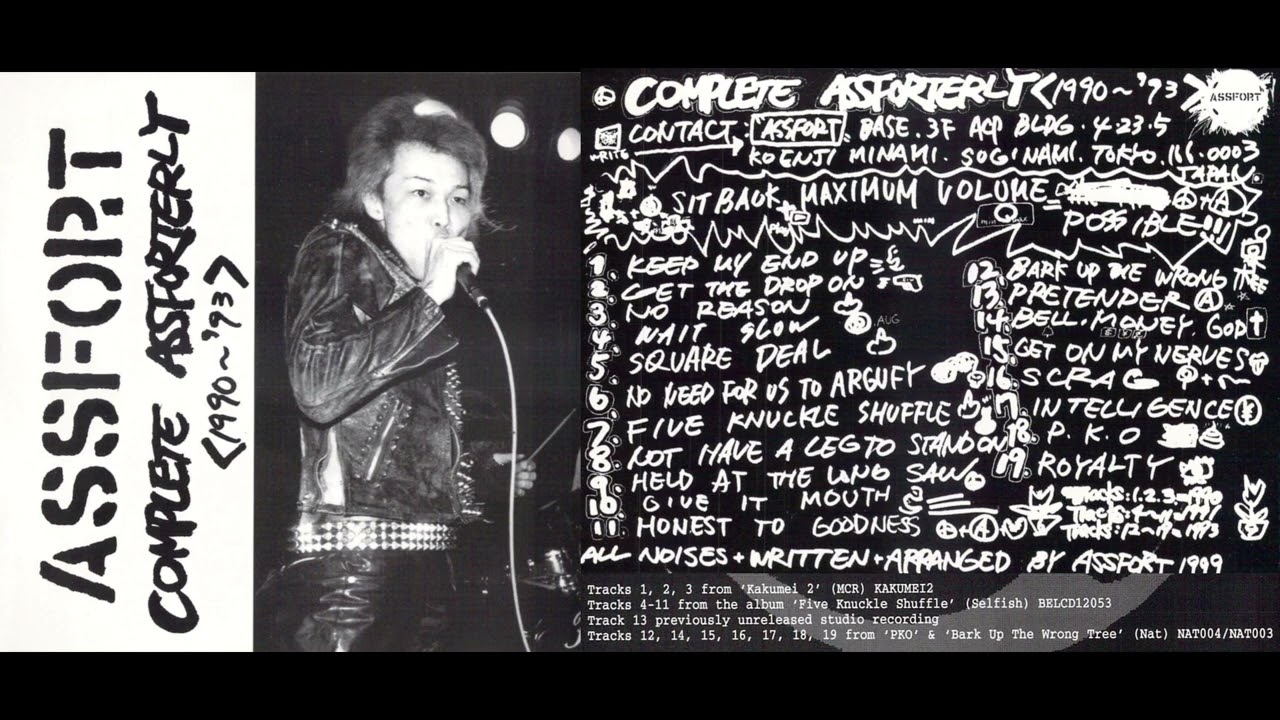 ASSFORT
COMPLETE ASSFORTERLY
<1990~'93>
COMPLETE ASSFORTERLY <1990~'93>
ASSFORT
CONTACT: "ASSFORT" BASE. 3F ACP BLDG. 4.23.5
WRITE
KOENJI MINAMI. SUGINAMI. TOKYO. 166.0003
JAPAN
SIT BACK MAXIMUM VOLUME
POSSIBLE!!!
1. KEEP MY END UP
2. GET THE DROP ON
3. NO REASON
4. WAIT SLOW
AUG
5. SQUARE DEAL
6. NO NEED FOR US TO ARGUFY
7. FIVE KNUCKLE SHUFFLE
8. NOT HAVE A LEG TO STAND ON
9. HELD AT THE LONG SAW
10. GIVE IT MOUTH
11. HONEST TO GOODNESS
12. BARK UP THE WRONG TREE
13. PRETENDER
14. BELL. MONEY. GOD
15. GET ON MY NERVES
16. SCRAG
17. INTELLIGENCE
18. P.K.O
19. ROYALTY
TRACKS:1.2.3→1990
TRACKS:4~11→1991
TRACKS:12~19→1993
ALL NOISES+WRITTEN+ARRANGED BY ASSFORT 1999
Tracks 1, 2, 3 from 'Kakumei 2' (MCR) KAKUMEI2
Tracks 4-11 from the album 'Five Knuckle Shuffle' (Selfish) BELCD12053
Track 13 previously unreleased studio recording
Tracks 12, 14, 15, 16, 17, 18, 19 from 'PKO' & 'Bark Up The Wrong Tree' (Nat) NAT004/NAT003